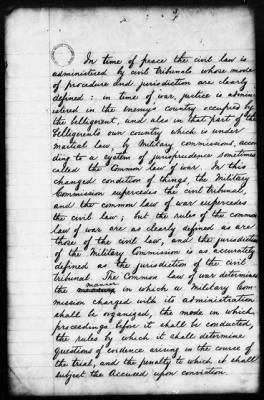 In time of peace the civil law is
administered by civil tribunals whose mode
of procedure and jurisdiction are clearly
defined: in time of war, justice is admin-
istered in the enemy's country occupied by
the belligerent, and also in that part of the
belligerents own country which is under
martial law, by Military commissions, accor-
ding to a system of jurisprudence sometimes
called the Common law of war. In this
changed condition of things, the Military
Commission supercedes the civil tribunal,
and the common law of war supercedes
the civil law; but the rules of the common
law of war are as clearly defined as are
those of the civil law, and the jurisdiction
of the Military Commission is as accurately
defined as the jurisdiction of the civil
tribunal. The Common law of war determines
manner
the in which a Military Com-
mission charged with its administration
shall be organized, the mode in which
proceedings before it shall be conducted,
the rules by which it shall determine
questions of evidence arising in the course of
the trial, and the penalty to which it shall
subject the Accused upon conviction.